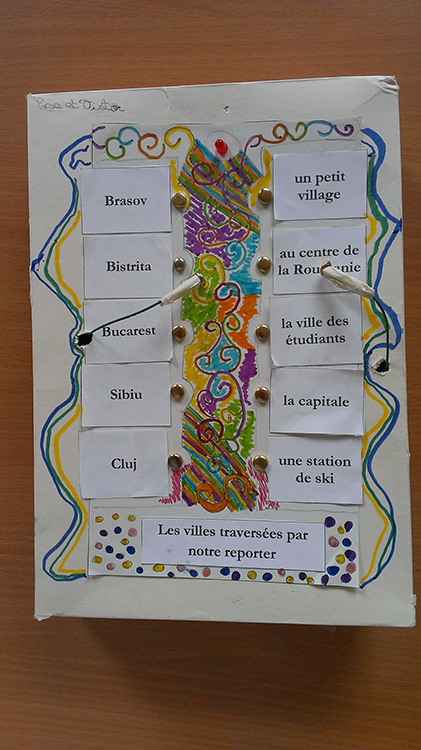 Eve et Victor
Brasov
un petit
village
Bistrita
au centre de
la Roumanie
Bucarest
la ville des
étudiants
Sibiu
la capitale
Cluj
une station
de ski
Les villes traversées par
notre reporter